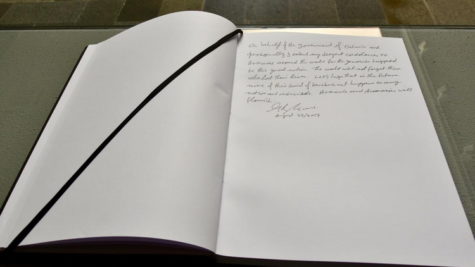 On behalf of the government of Ontario and
personally I extend my deepest condolences to
Armenians around the world for the genocide happened
to this great nation. The world will not forget those
who lost their lives. Let's hope that in the future
none of this kind of
nation and individuals. Armenia and Armenians will
flourish.
August 2017